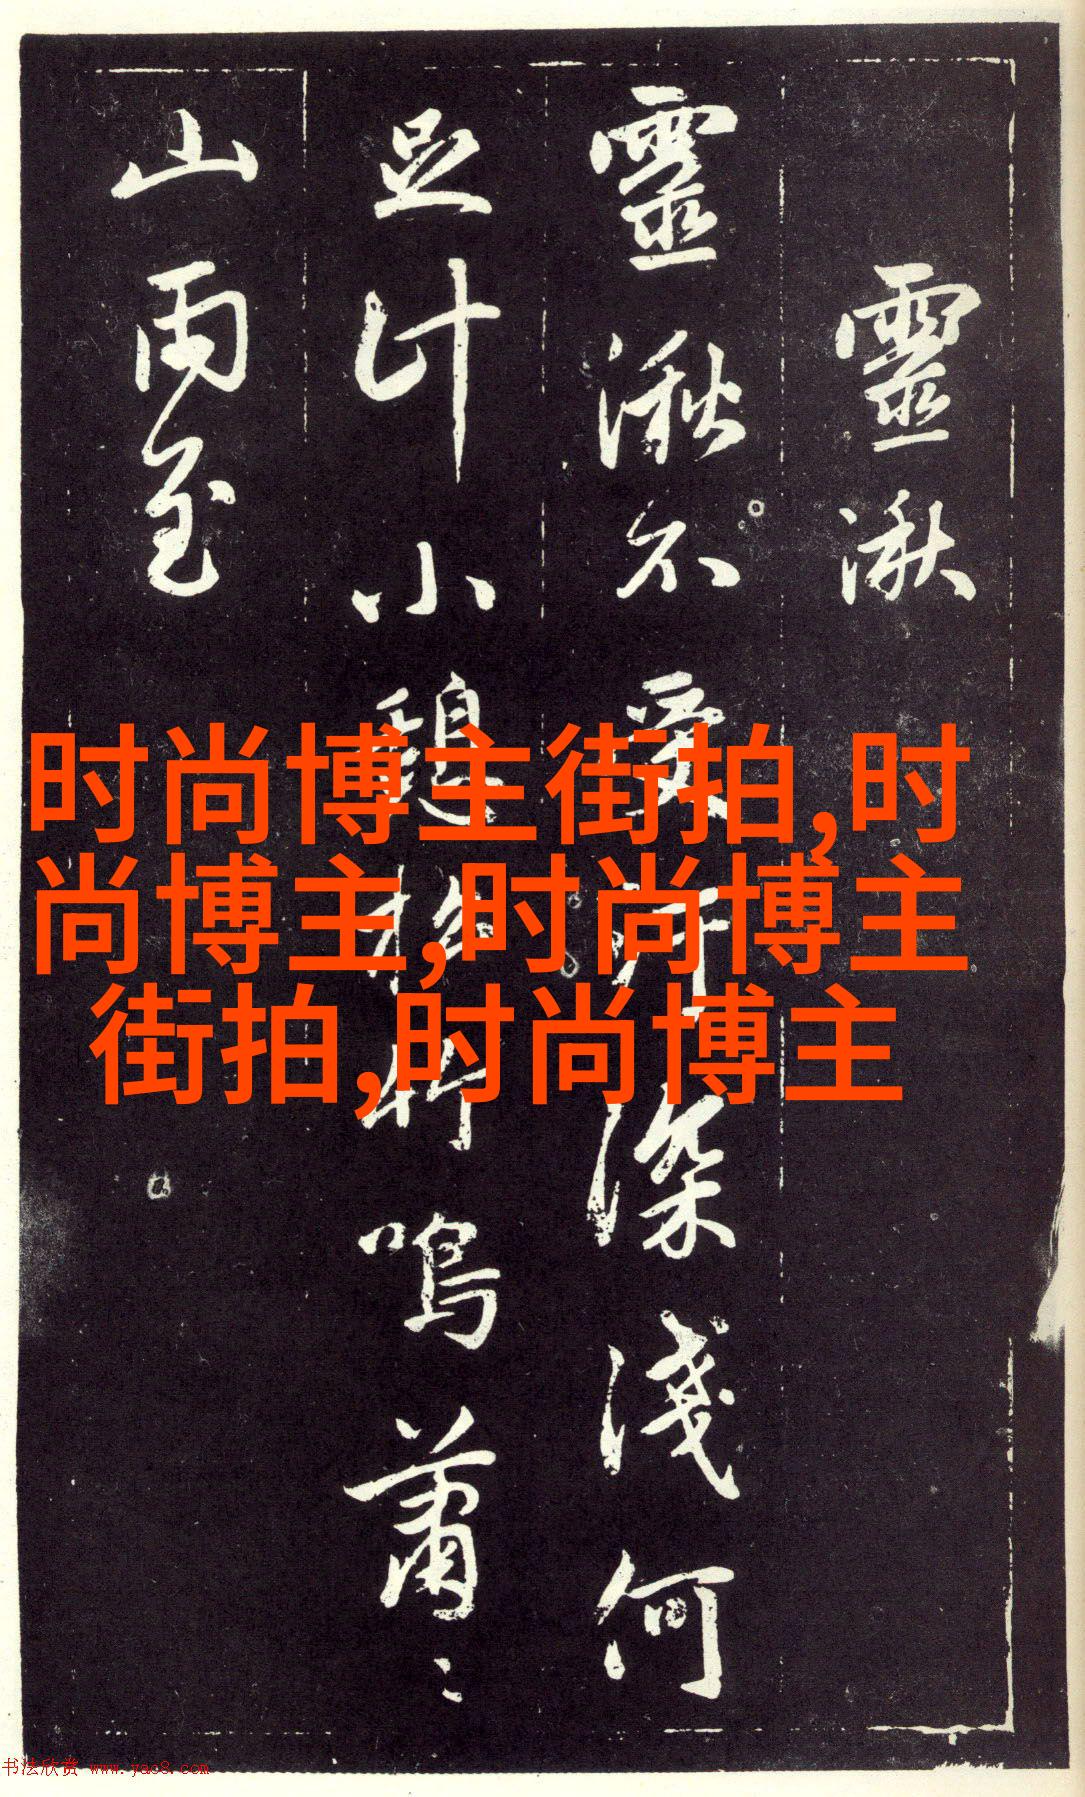 靈湫
靈湫不受深淺何
足計小鳴蕭〻
山雨至
时尚博主街拍,时
尚博主,时尚博主
街拍,时尚博主
书法欣赏 www.yac8.com